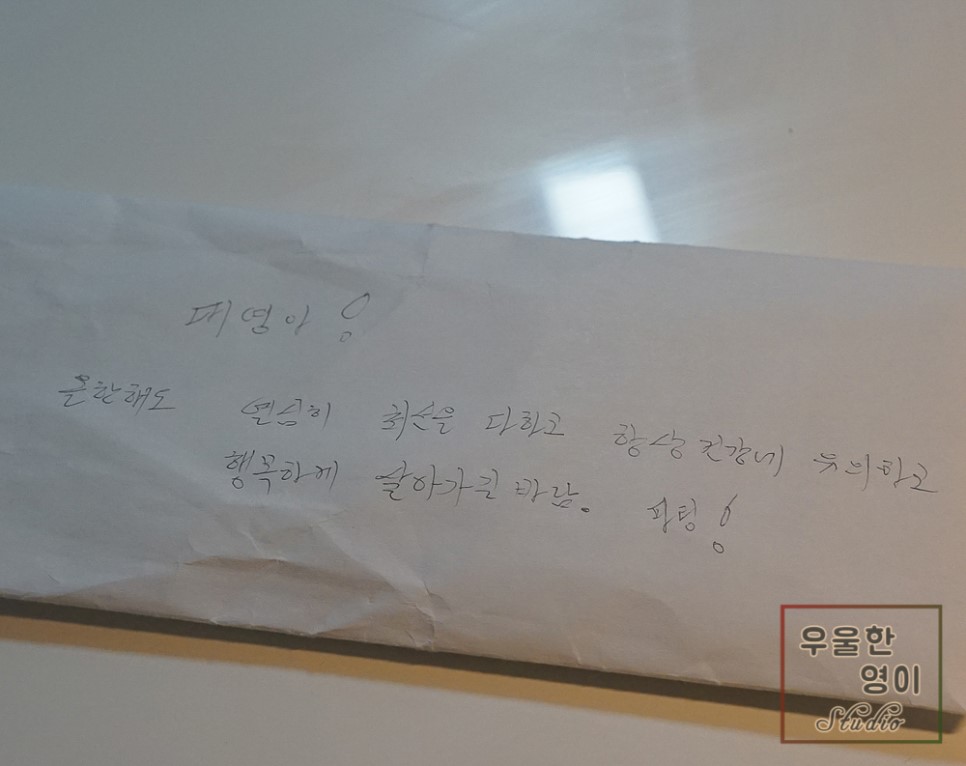 대영아!
올한해도 열심히 최선을 다하고 항상 건강에 유의하고
행복하게 살아가길 바람. 파팅!
우울한
영이
Studio